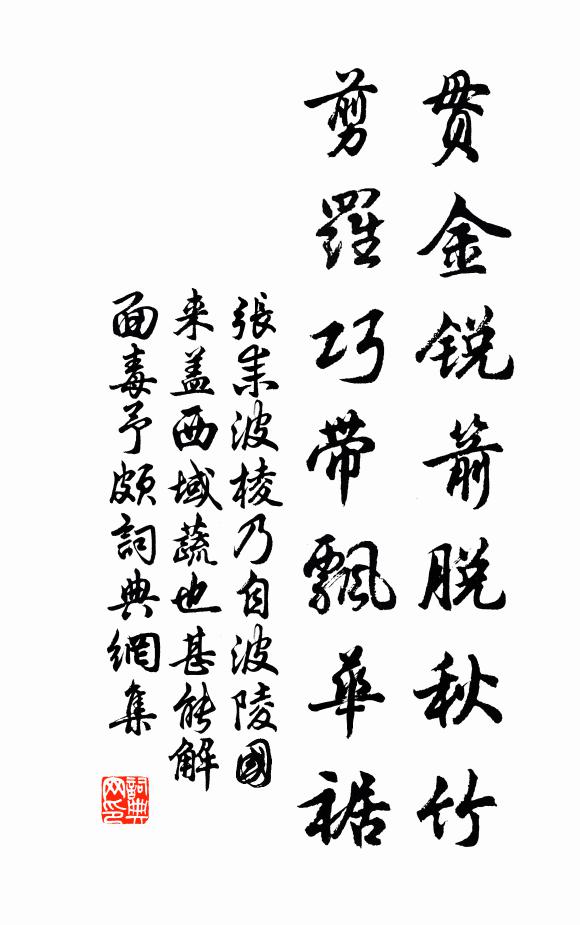 贯金锐箭脱秋竹
剪羅巧带飄华裾
張耒波棱乃自波陵國
来盖西域蔬也甚能解
面毒予頗詞典網集
詞典网印